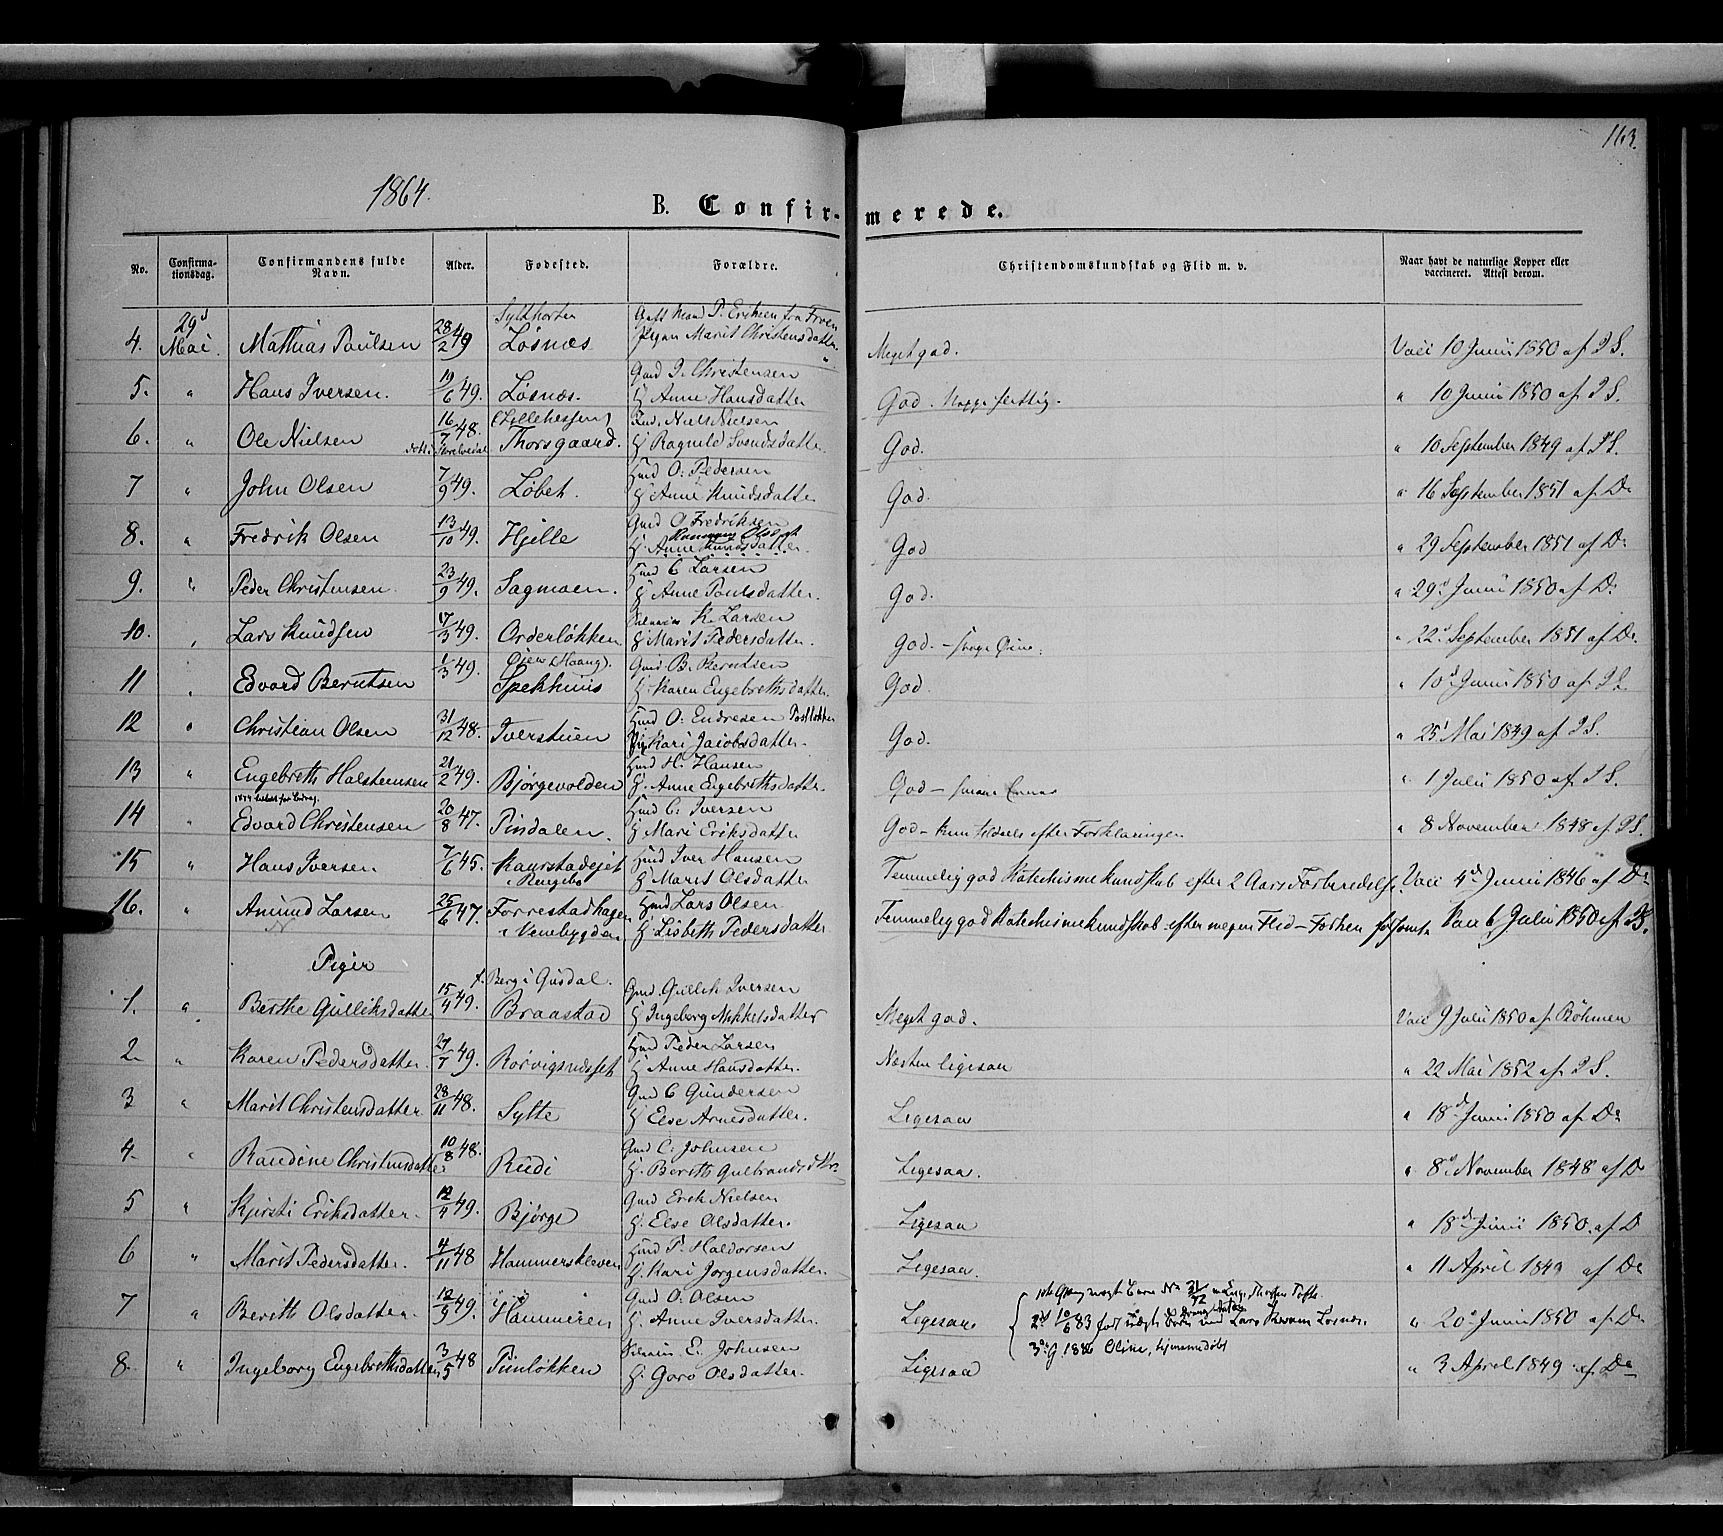 163.
1864.
B. Confirmerede.
No. Confirmationsdag. Confirmandens fulde Navn. Alder. Fødested. Forældre. Christendomskundskab og Flid m. v. Naar havt de naturlige Kopper eller vaccineret. Attest derom.
29d Mai
4. Mathias Poulsen 28/2 49 Løsnæs Pigen Marit Christensdatter Meget god. Vacc 10 Junii 1850 af J S.
5. " Hans Iversen. 19/6 49. Løsnæs. Gmd I. Christensen
H Anne Hansdatter God. " 10 Junii 1850 af J S.
6. " Ole Nielsen 16/7 48. Thorsgaard. Ind. Niels Nielsen
H Ragnild Svendsdatter God. " 10 September 1849 af J S.
7 " John Olsen 7/9 49. Løbet. Hmd O: Pedersen
H Anne Knudsdatter God. " 16 September 1851 af Do
8. " Fredrik Olsen 13/10 49. Hjelle Gmd O Fredriksen
H. Anne Knudsdatter. God " 29 September 1851 af Do
9. " Peder Christensen. 23/9 49. Sagmoen. Hmd C Larsen
H Anne Poulsdatter. God. " 29d Junii 1850 af Do
10. " Lars Knudsen 17/3 49. Orderløkken K. Larsen
H Marit Pedersdatter. God. – svage Øine. " 22d September 1851 af Do
11 " Edvard Berntsen 1/3 49. Øien (Haang). Spekhuus Gmd B. Berntsen
H. Karen Engebrethsdatter God. " 10d Junii 1850 af J S.
12 " Christian Olsen 31/12 48. Iverstuen Hmd O: Endresen
Kari Jacobsdatter. God. " 25d Mai 1849 af J S.
13 " Engebreth Halstensen 21/2 49. Bjørgevolden Hmd H. Hansen
H. Anne Engebrethsdatter. God – " 1 Julii 1850 af J S.
14 " Edvard Christensen 20/8 47. Pindalen. Hmd C: Iversen
H Mari Eriksdatter God – kun tildeels efter Forklaringen " 8 November 1848 af J S.
15 " Hans Iversen 7/6 45. Kaarstadejet i Ringebo Hmd Iver Hansen
H Marit Olsdatter Temmelig god Katechismekundskab efter 2 Aars Forberedelse. Vacc 4d Junii 1846 af Do
16. " Amund Larsen 25/6 47 Forrestadhagen i Venebygden Hmd Lars Olsen
H Lisbeth Pedersdatter Temmelig god Katechismekundskab efter megen Flid – Vacc 6 Julii 1850 af J S.
Piger
1. " Berthe Gulliksdatter 15/4 49. f. Berg i Gusdal. Braastad Gmd. Gullik Iversen
H Ingeborg Mikkelsdatter Meget god. Vacc 9 Julii 1850 af Böhmen
2. " Karen Pedersdatter. 27/7 49. Rorvigsødset Hmd Peder Larsen
H Anne Hansdatter. Næsten ligesaa " 22 Mai 1852 af J S.
3 " Marit Christensdatter 28/11 48. Sylte Gmd C Gundersen
H Else Arnesdatter. Ligesaa " 18d Junii 1850 af Do
4. " Randine Christensdatter 10/8 48. Rudi Gmd C. Johnsen
H. Berith Gulbrandsdtr. Ligesaa. " 8d November 1848 af D
5 " Kjersti Eriksdatter. 12/4 49. Bjørge Gmd Erik Nielsen
H. Else Olsdatter. Ligesaa " 18de Junii 1850. af D
6 " Marit Pedersdatter. 4/11 48 Hammerskleven Hmd P. Haldorsen
H. Kari Jørgensdatter. Ligesaa. " 11 April 1849 af Do
7 " Berith Olsdatter. 12/9 49. Hammeren Gmd O. Olsen
H. Anne Iversdatter. Ligesaa " 20d Junii 1850 af Do
8. " Ingeborg Engebrethsdatter 3/5 48 Tunløkken E. Johnsen
H. Goro Olsdatter. Ligesaa " 3 April 1849 af Do